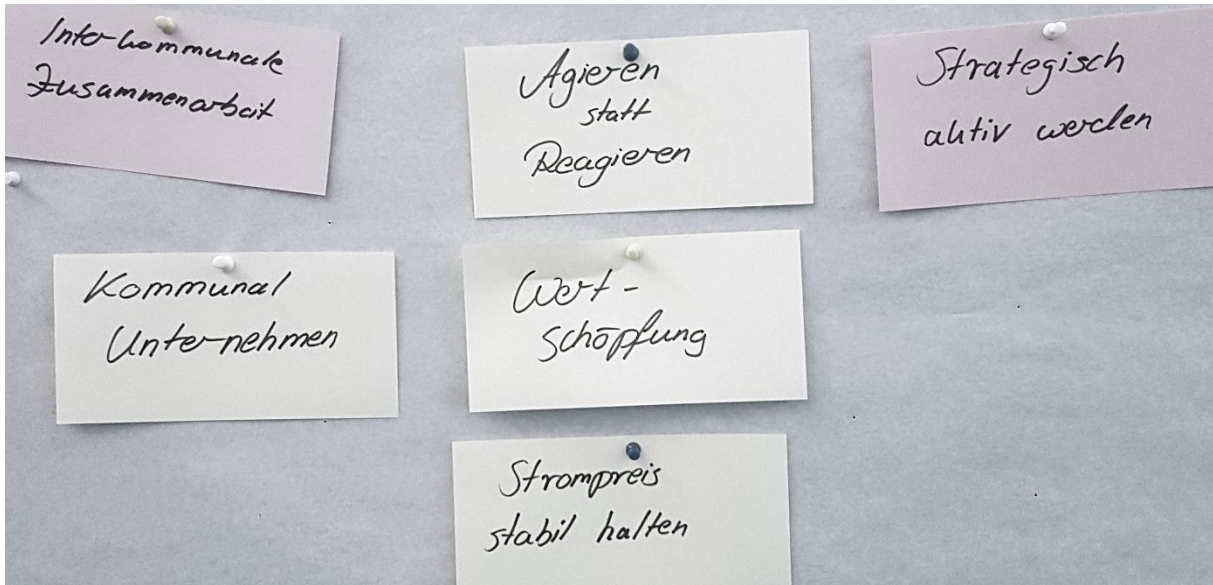 Interkommunale
Zusammenarbeit
Agieren
statt
Reagieren
Strategisch
aktiv werden
Kommunal
Unternehmen
Wert-
schöpfung
Strompreis
stabil halten